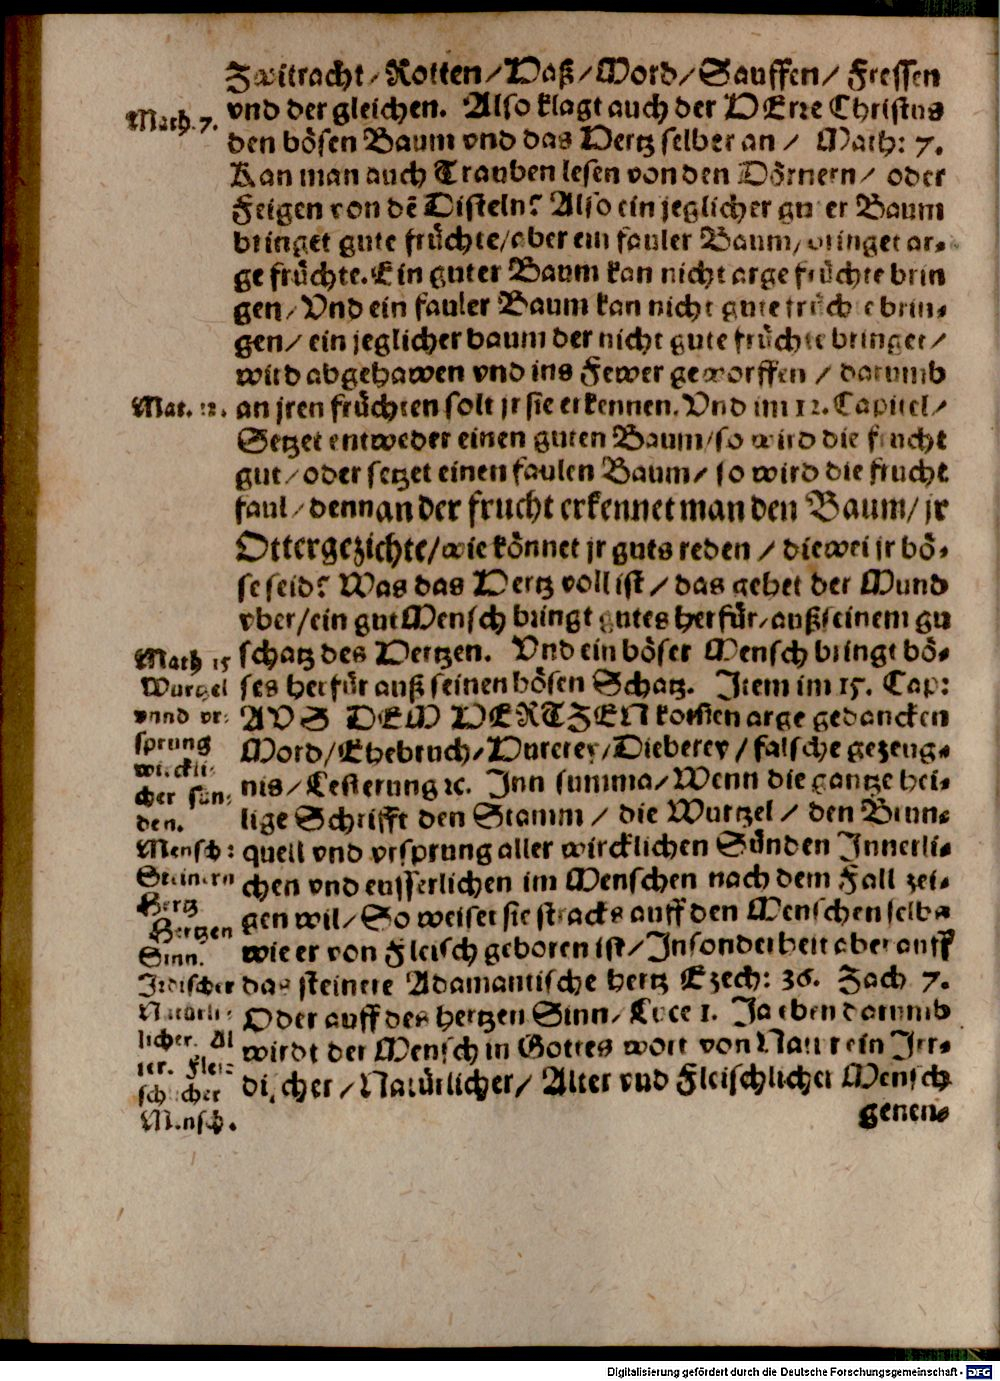 Zwitracht / Rotten / Haß / Mord / Sauffen / Fressen
Math. 7.
vnd der gleichen. Also klagt auch der HErre Christus
den bösen Baum vnd das Hertz selber an / Math: 7.
Kan man auch Trauben lesen von den Dörnern / oder
Feigen von dē Disteln? Also ein jeglicher guter Baum
bringet gute früchte / aber ein fauler Baum / bringet ar-
ge früchte. Ein guter Baum kan nicht arge früchte brin
gen / Vnd ein fauler Baum kan nicht gute früchte brin-
gen / ein jeglicher baum der nicht gute früchte bringet /
wird abgehawen vnd ins Fewer geworffen / darumb
Mat. 12.
an jren früchten solt jr sie erkennen. Vnd im 12. Capitel /
Setzet entweder einen guten Baum / so wird die frucht
gut / oder setzet einen faulen Baum / so wird die frucht
faul / denn an der frucht erkennet man den Baum / jr
Ottergezichte / wie könnet jr guts reden / diewei jr bö-
se seid? Was das Hertz voll ist / das gehet der Mund
vber / ein gut Mensch bringt gutes herfür / auß seinem gu
schatz des Hertzen. Vnd ein böser Mensch bringt bö-
Math 15
ses herfür auß seinen bösen Schatz. Item im 15. Cap:
AVS DEM HERTZEN kom̄en arge gedancken
Mord / Ehebruch / Hurerey / Dieberey / falsche gezeug-
nis / Lesterung ꝛc. Inn summa / Wenn die gantze hei-
lige Schrifft den Stamm / die Wurtzel / den Brun-
quell vnd vrsprung aller wircklichen Sünden Innerli-
chen vnd eusserlichen im Menschen nach dem Fall zei-
gen wil / So weiset sie stracks auff den Menschen selbs
wie er von Fleisch geboren ist / Insonderheit aber auff
das steinere Adamantische hertz Ezech: 36. Zach 7.
Oder auff des hertzen Sinn / Luce 1. Ja eben darumb
wirdt der Mensch in Gottes wort von Natur ein Irr-
discher / Natürlicher / Alter vnd Fleischlicher Mensch
genen-
Wurtzel
vnnd vr-
sprung
wirckli-
cher sün-
den.
Mensch:
Steinern
Hertz
Hertzen
Sinn.
Irdischer
Natürli-
licher. Al
ter. Flei-
schlicher
Mensch.
Digitalisierung gefördert durch die Deutsche Forschungsgemeinschaft - DFG